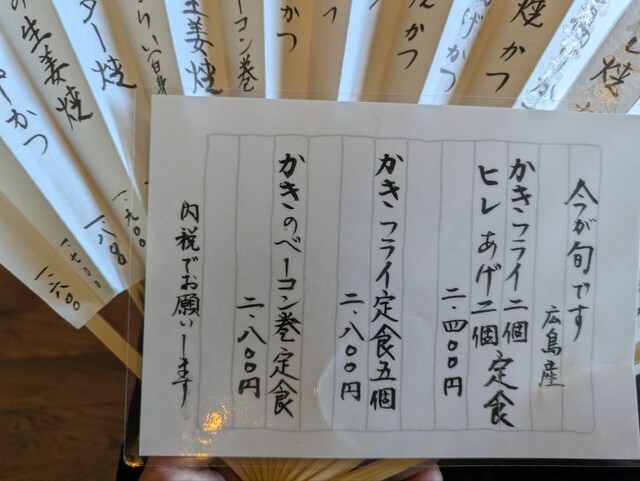 今が旬です
広島産
かきフライ二個
ヒレあげ二個定食
二.四〇〇円
かきフライ定食五個
二.八〇〇円
かきのベーコン巻定食
二.八〇〇円
内税でお願いします
焼かつ
げかつ
かつ
ーコン巻
生姜焼
ター焼
の生姜焼
かつ
一.九〇〇
一.七〇〇
一.六〇〇